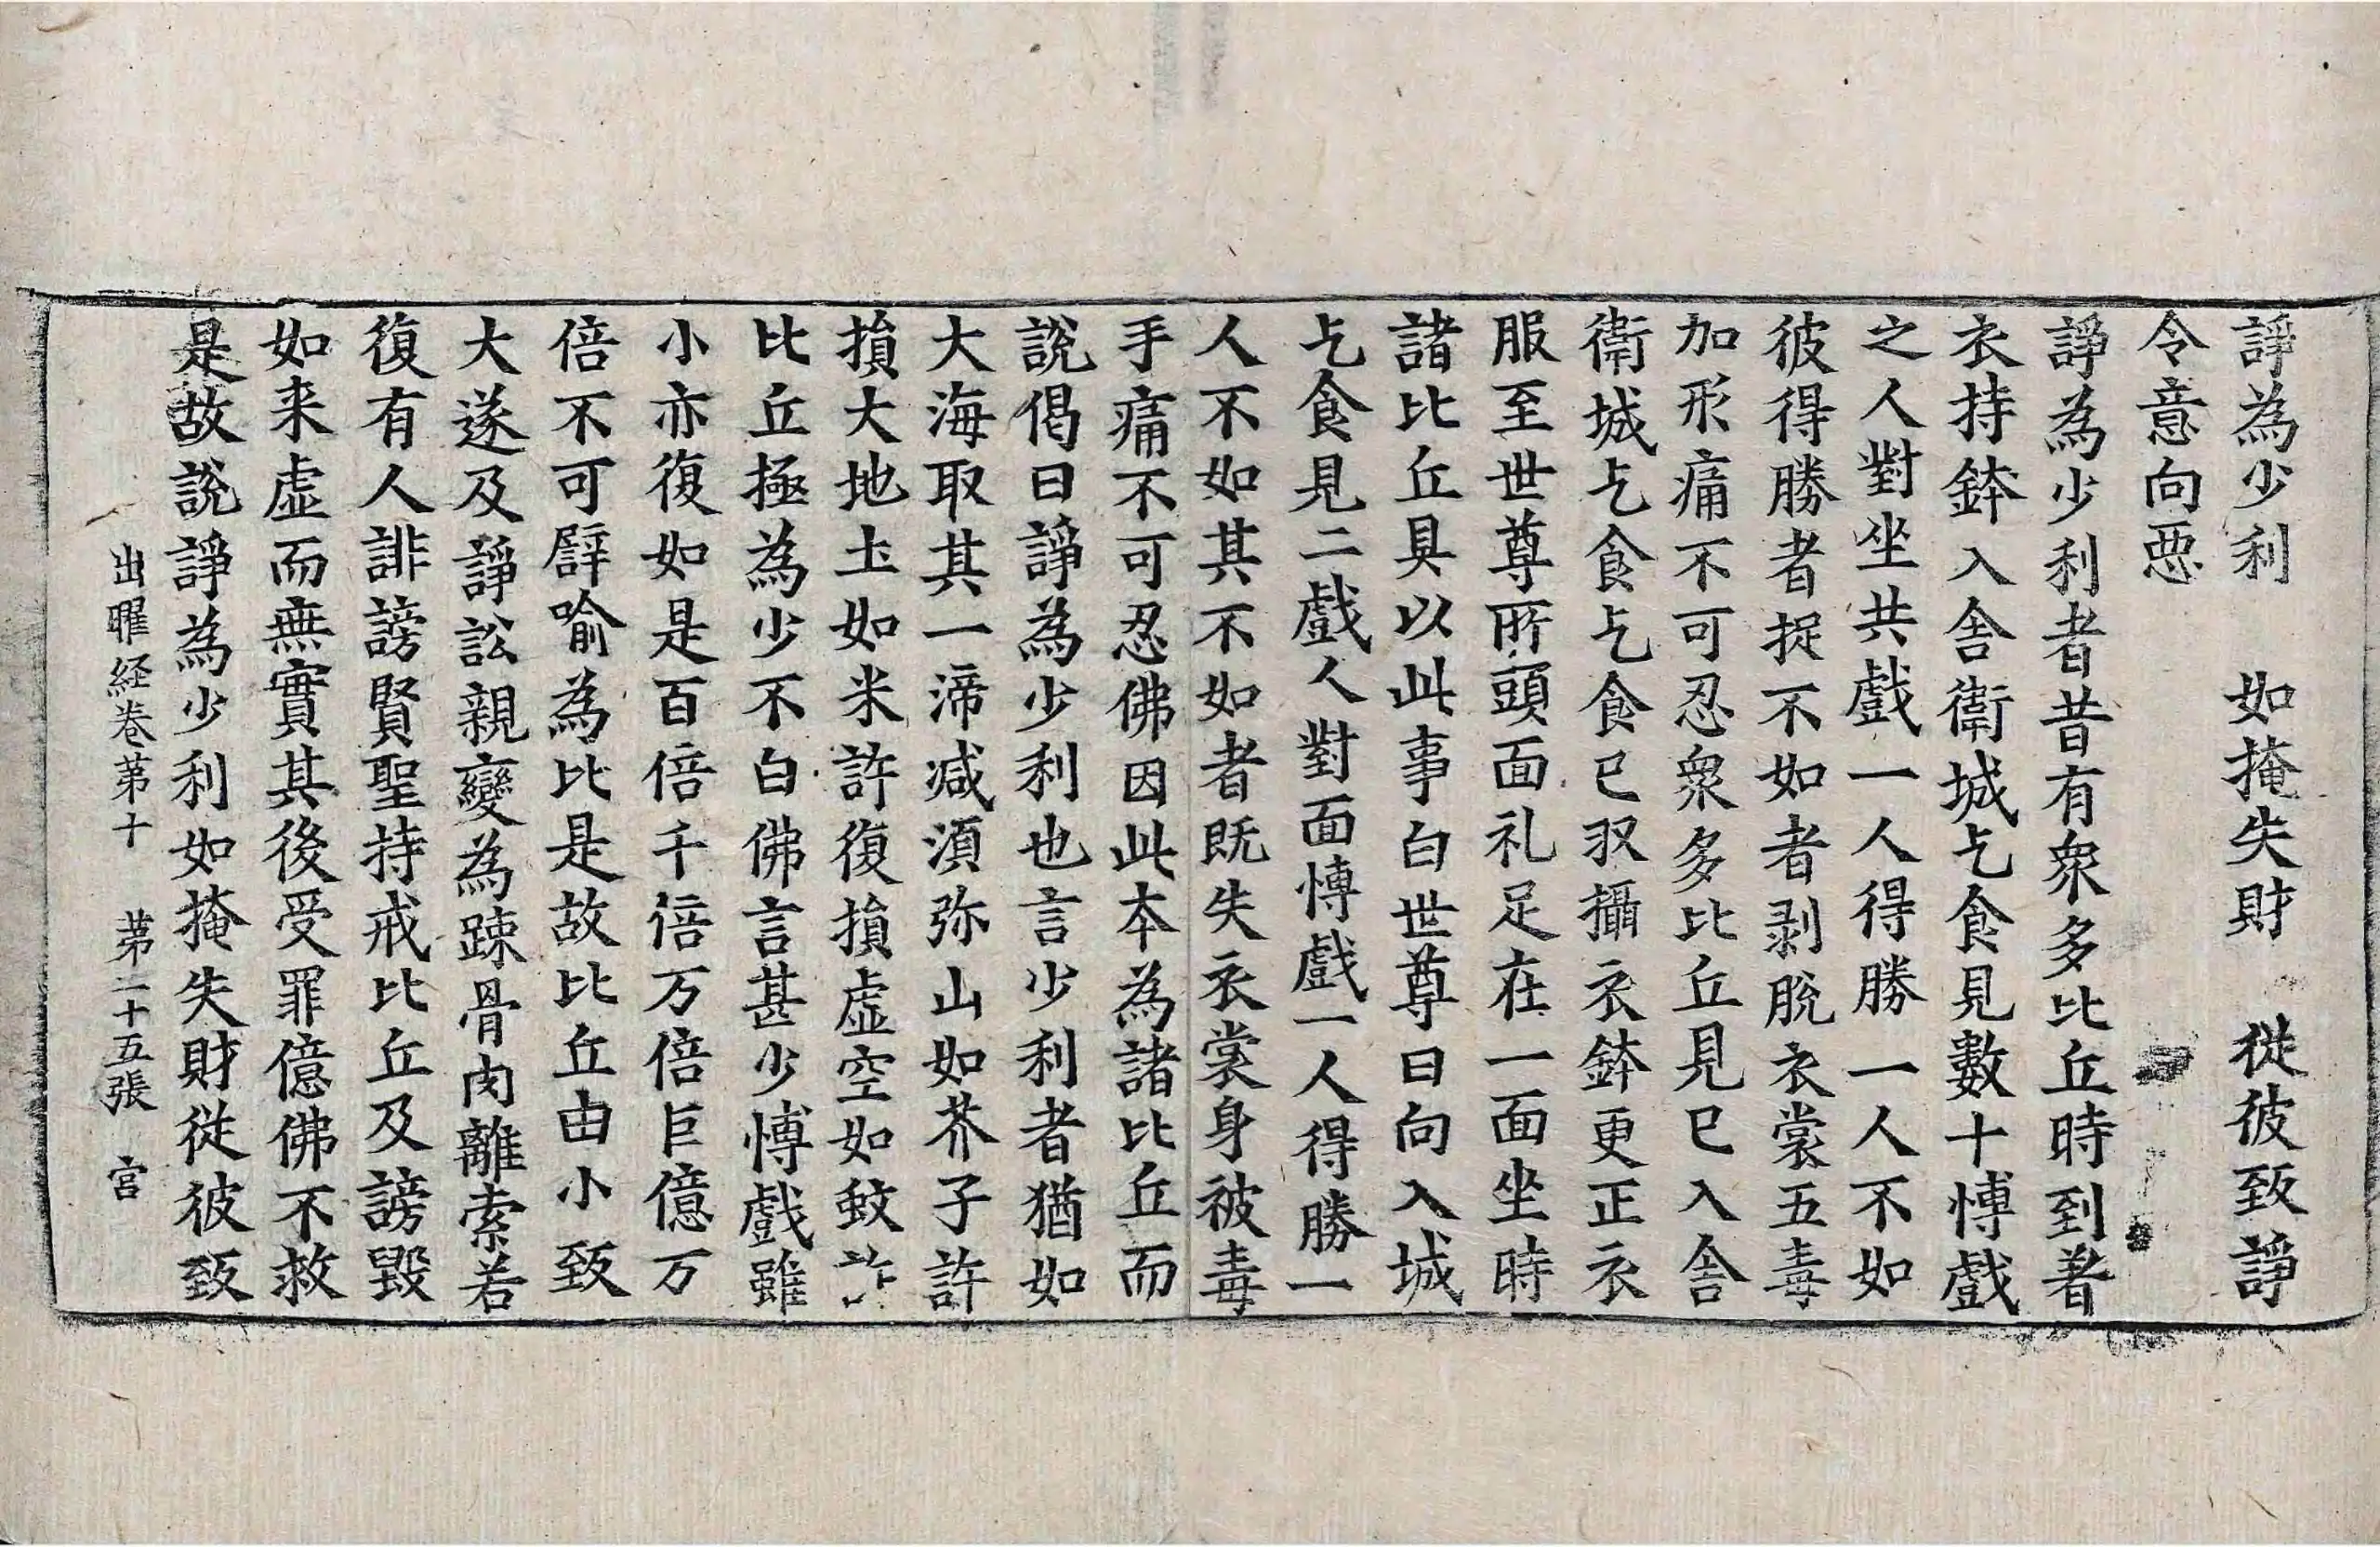 諍為少利　如掩失財　從彼致諍
令意向惡
諍為少利者昔有衆多比丘時到著
衣持鉢入舍衛城乞食見數十愽戲
之人對坐共戲一人得勝一人不如
彼得勝者捉不如者剥脫衣裳五毒
加形痛不可忍衆多比丘見已入舍
衛城乞食乞食已収攝衣鉢更正衣
服至世尊所頭面礼足在一面坐時
諸比丘具以此事白世尊曰向入城
乞食見二戲人對面愽戲一人得勝一
人不如其不如者既失衣裳身被毒
手痛不可忍佛因此本為諸比丘而
說偈曰諍為少利也言少利者猶如
大海取其一渧减湏弥山如芥子許
損大地土如米許復損虛空如蚊許
比丘極為少不白佛言甚少愽戲雖
小亦復如是百倍千倍万倍巨億万
倍不可譬喻為比是故比丘由小致
大遂及諍訟親變為踈骨肉離索若
復有人誹謗賢聖持戒比丘及謗毀
如来虛而無實其後受罪億佛不救
是故說諍為少利如掩失財從彼致
出曜経巻第十　第二十五張　宫